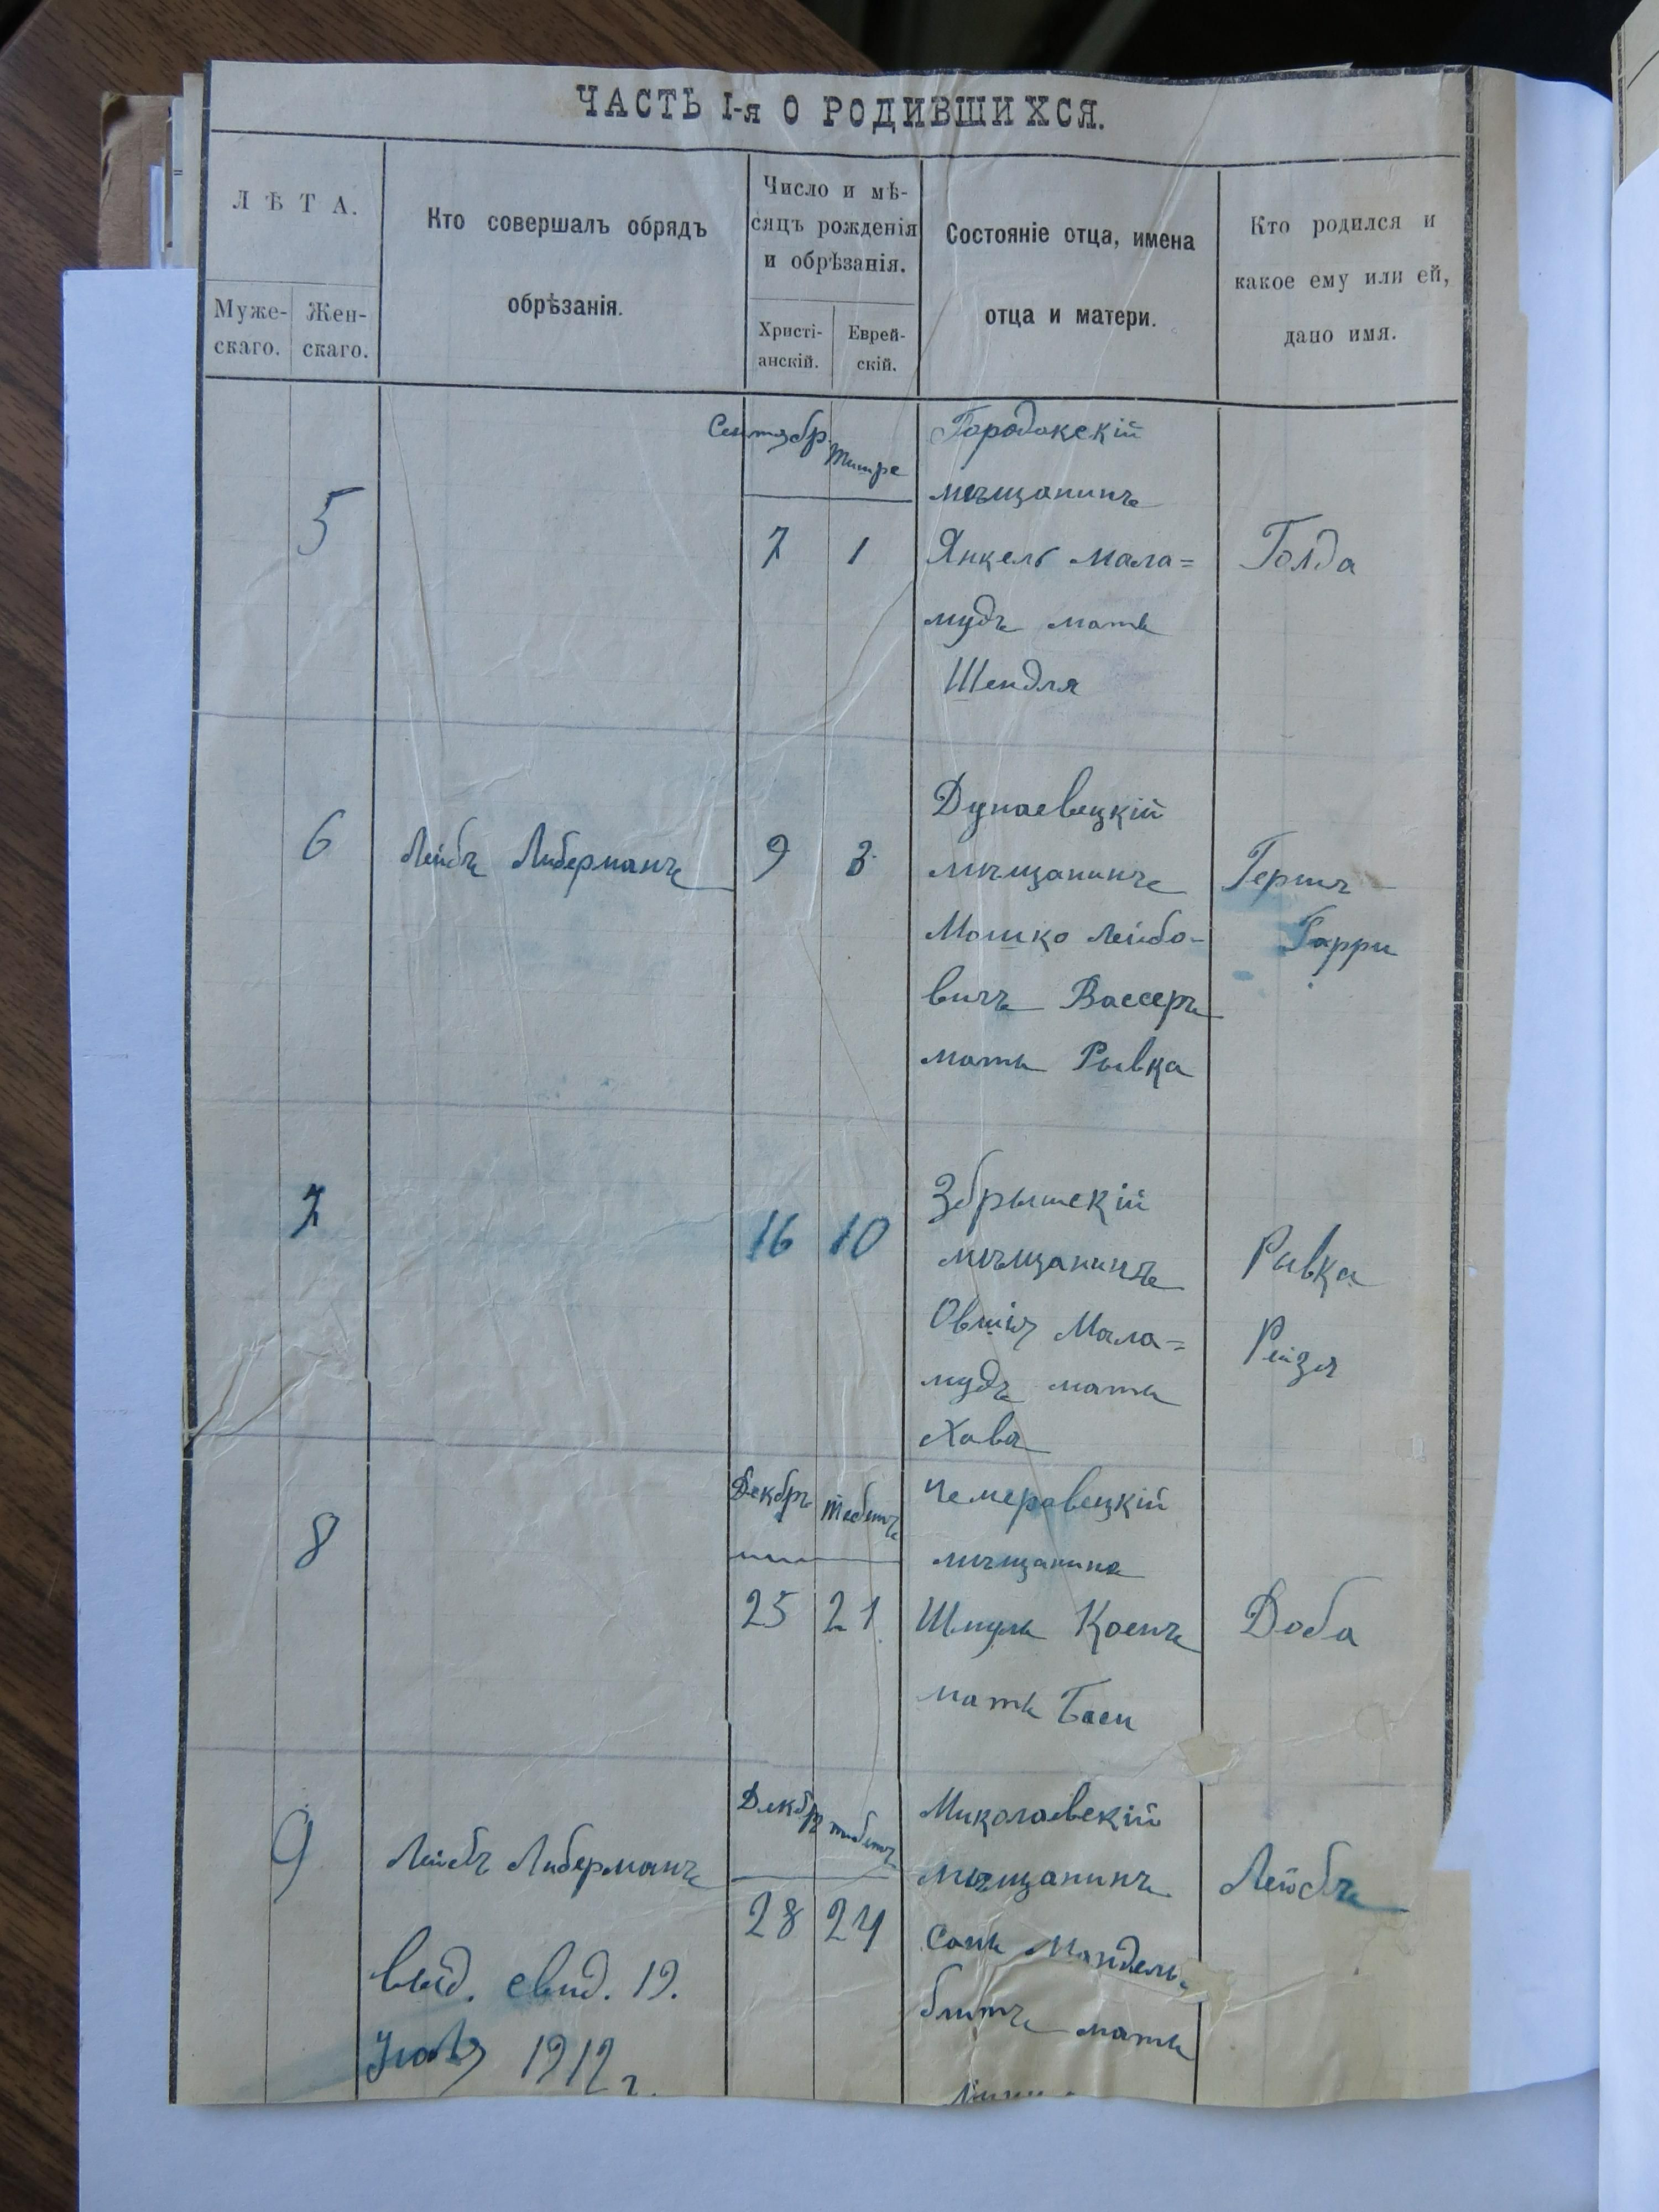 ЧАСТЬ I-я О РОДИВШИХСЯ.
ЛѢТА.
Муже-
скаго.
Жен-
скаго.
Кто совершалъ обрядъ
обрѣзанія.
Число и мѣ-
сяцъ рожденія
и обрѣзанія.
Христі-
анскій.
Еврей-
скій.
Состояніе отца, имена
отца и матери.
Кто родился и
какое ему или ей,
дано имя.
5
Сентябр.
Тишре
7
1
Городокскій
мѣщанинъ
Янкель Мала=
мудъ мать
Шендля
Голда
6
Лейбъ Либерманъ
9
3
Дунаевецкій
мѣщанинъ
Мошко Лейбо-
вичъ Вассеръ
мать Рывка
Гершъ
Гарри
7
16
10
Збрышскій
мѣщанинъ
Овшія Мала=
мудъ мать
Хава
Рывка
Рейзя
8
Декабрь
Тебетъ
25
21
Чемеровецкій
мѣщанинъ
Шмуль Коенъ
мать Баси
Доба
9
Лейбъ Либерманъ
Декабр
тебетъ
28
24
Миколаевскій
мѣщанинъ
Мандель-
блитъ мать
Лейбъ
выд. свид. 19.
1912 г.